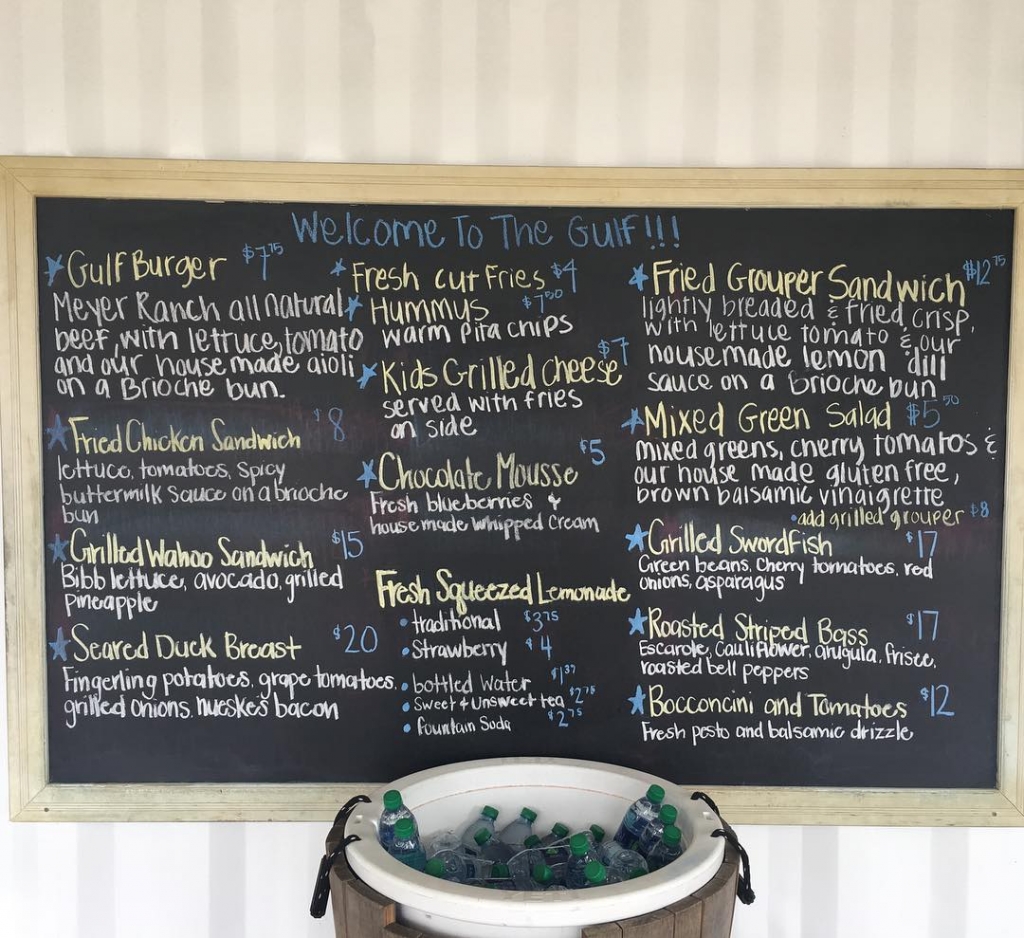 Welcome To The Gulf!!!
Gulf Burger $7.75
Meyer Ranch all natural
beef, with lettuce, tomato
and our house made aioli
on a Brioche bun.
Fried Chicken Sandwich $8
lettuce, tomatoes, spicy
buttermilk sauce on a brioche
bun
Grilled Wahoo Sandwich $15
Bibb lettuce, avocado, grilled
pineapple
Seared Duck Breast $20
Fingerling potatoes, grape tomatoes,
grilled onions, nueske's bacon
Fresh cut Fries $4
Hummus $7.50
warm pita chips
Kids Grilled Cheese $7
served with fries
on side
Chocolate Mousse $5
Fresh blueberries &
house made whipped cream
Fresh Squeezed Lemonade
traditional $3.75
Strawberry $4
bottled water $1.37
Sweet & Unsweet tea $2.75
fountain Soda $2.75
Fried Grouper Sandwich $12.75
lightly breaded & fried crisp,
with lettuce tomato & our
housemade lemon dill
sauce on a brioche bun
Mixed Green Salad $5.50
mixed greens, cherry tomatoes &
our house made gluten free,
brown balsamic vinaigrette
add grilled grouper $8
Grilled Swordfish $17
Green beans, cherry tomatoes, red
onions, asparagus
Roasted Striped Bass $17
Escarole, Cauliflower, arugula, frisee,
roasted bell peppers
Bocconcini and Tomatoes $12
Fresh pesto and balsamic drizzle